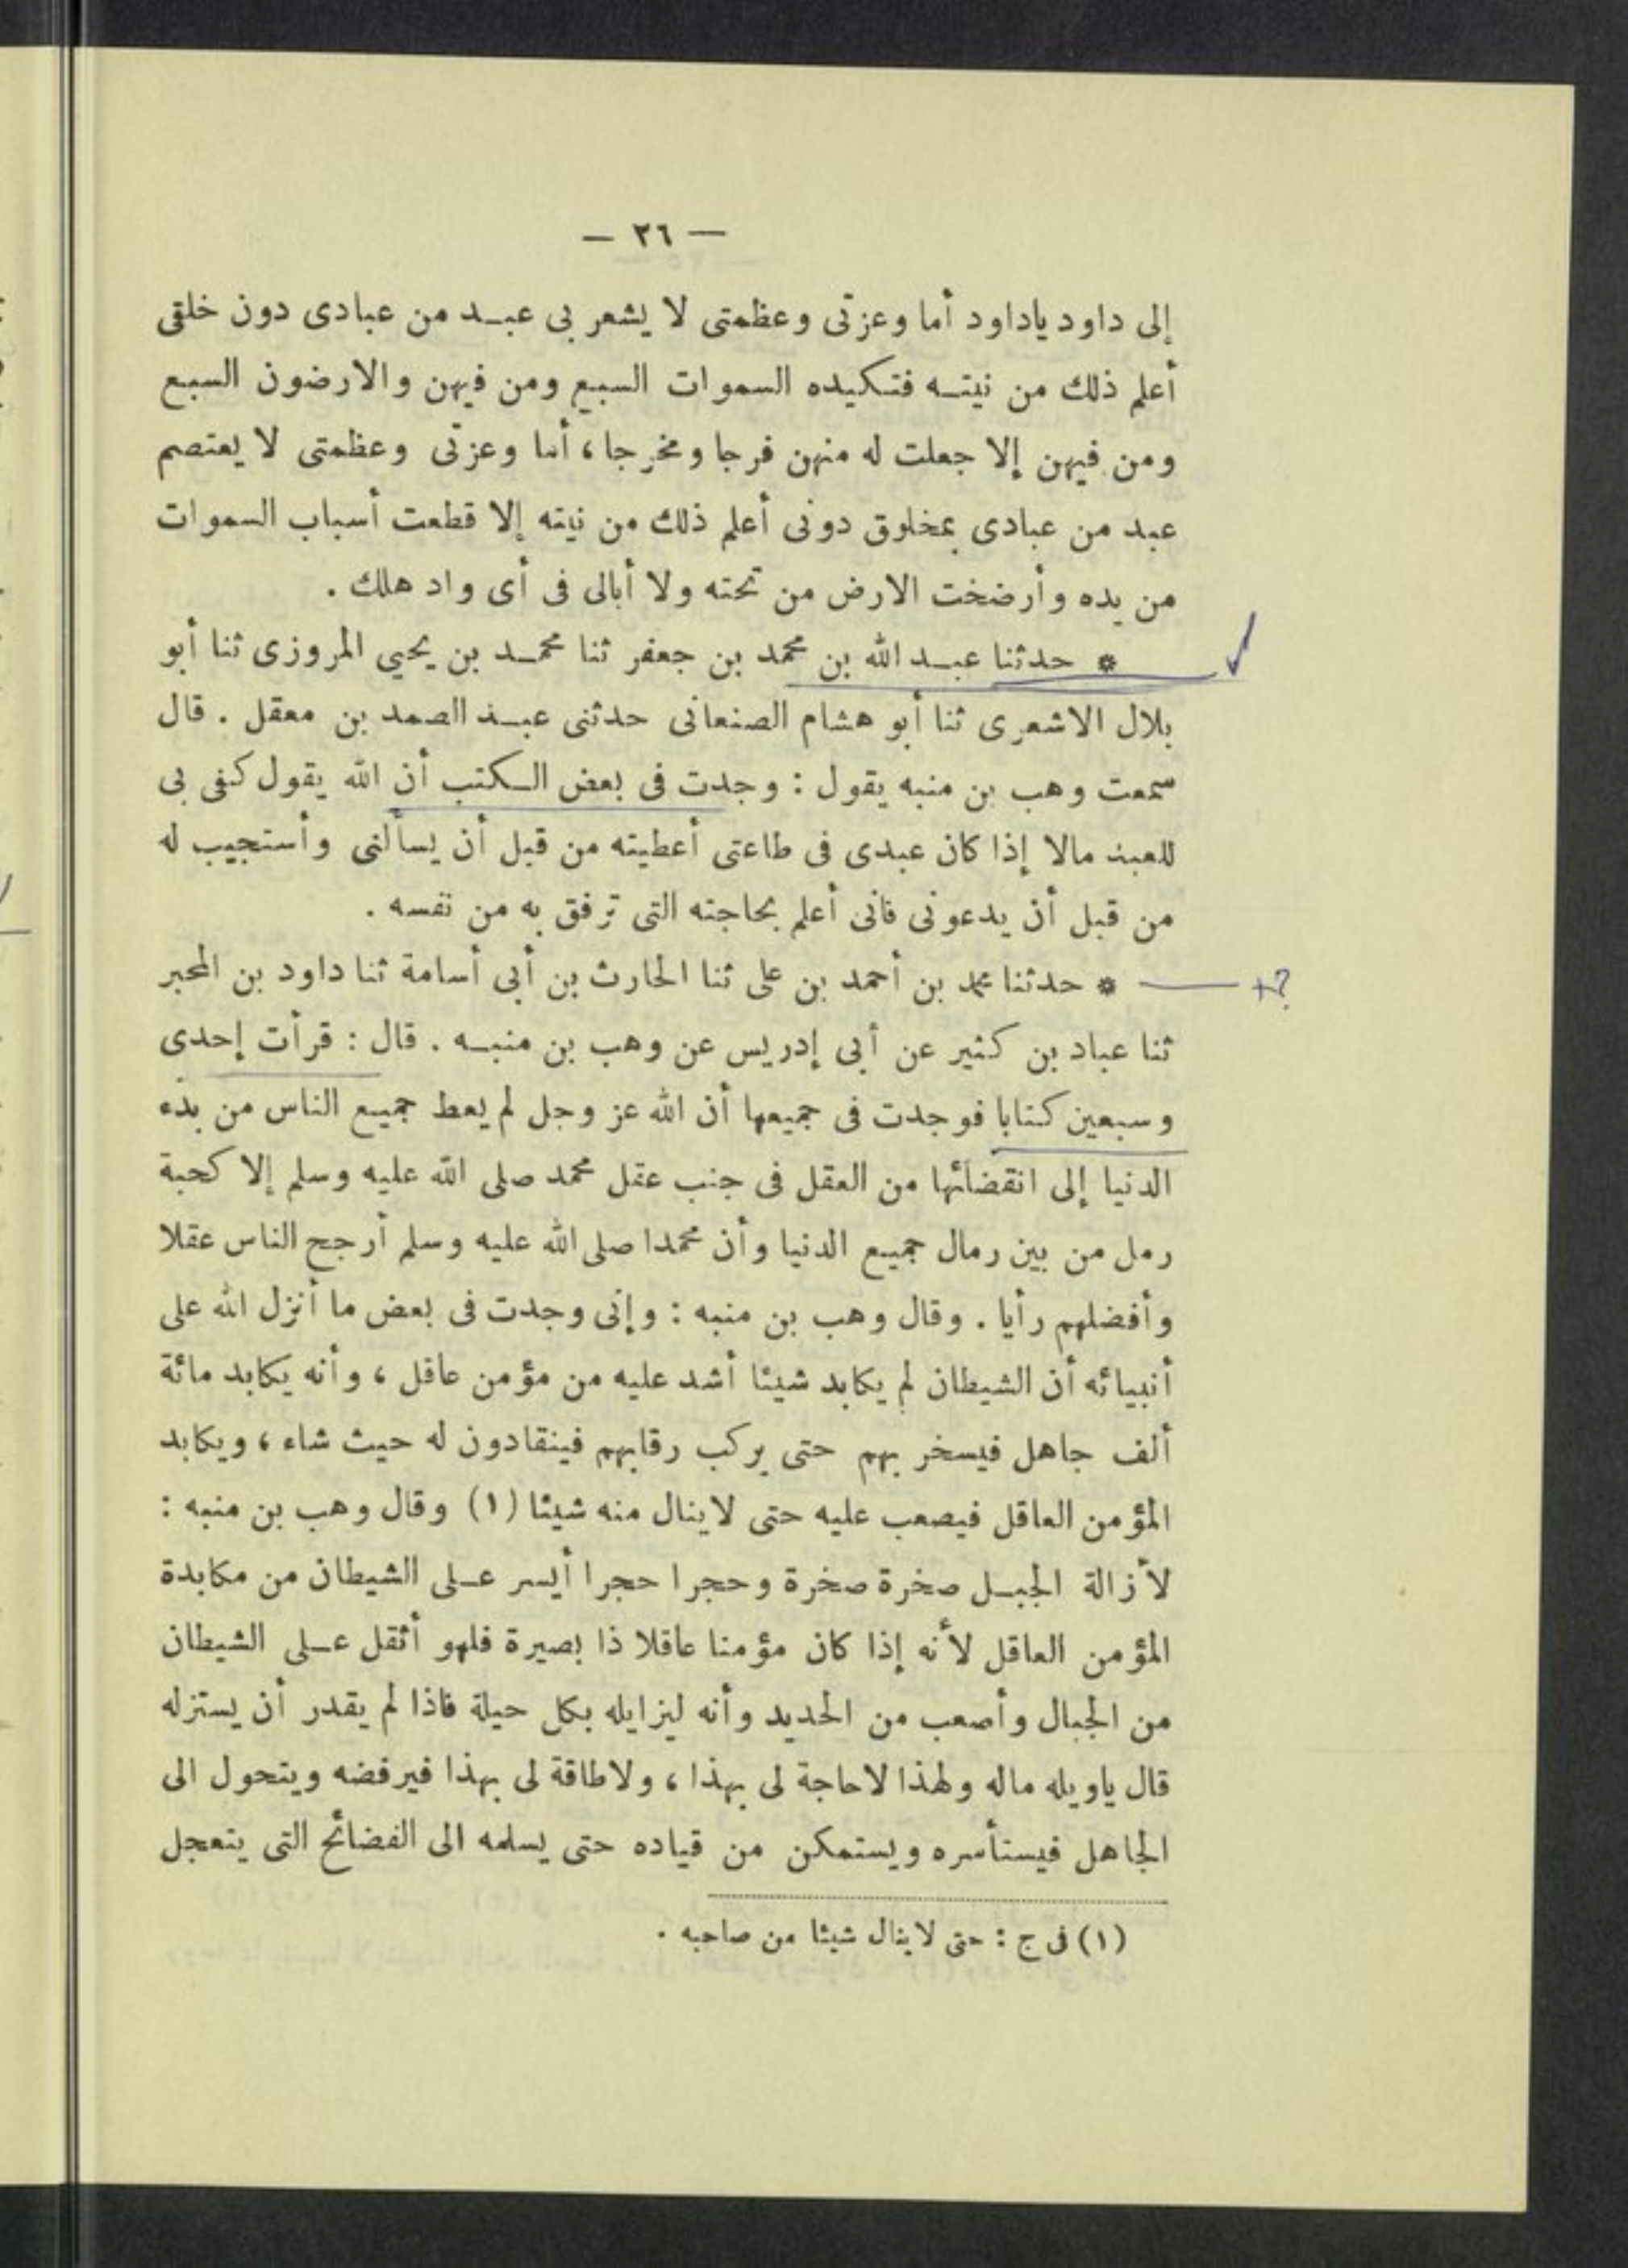 — ٢٦ —
إلى داود ياداود أما وعزتى وعظمتى لا يشعر بى عبـد من عبادى دون خلقى
أعلم ذلك من نيتـه فتـكيده السموات السبع ومن فيهن والارضون السبع
ومن فيهن إلا جعلت له منهن فرجا ومخرجا، أما وعزتى وعظمتى لا يعتصم
عبد من عبادى بمخلوق دونى أعلم ذلك من نيته إلا قطعت أسباب السموات
من يده وأرضخت الارض من تحته ولا أبالى فى أى واد هلك .
* حدثنا عبـد الله بن محمد بن جعفر ثنا محمـد بن يحيى المروزى ثنا أبو
بلال الاشعرى ثنا أبو هشام الصنعانى حدثنى عبـد الصمد بن معقل . قال
سمعت وهب بن منبه يقول : وجدت فى بعض الـكتب أن الله يقول كفى بى
للعبد مالا إذا كان عبدى فى طاعتى أعطيته من قبل أن يسألنى وأستجيب له
من قبل أن يدعونى فانى أعلم بحاجته التى ترفق به من نفسه .
* حدثنا محمد بن أحمد بن على ثنا الحارث بن أبى أسامة ثنا داود بن المحبر
ثنا عباد بن كثير عن أبى إدريس عن وهب بن منبـه . قال : قرأت إحدى
وسبعين كتابا فوجدت فى جميعها أن الله عز وجل لم يعط جميع الناس من بدء
الدنيا إلى انقضائها من العقل فى جنب عقل محمد صلى الله عليه وسلم إلا كحبة
رمل من بين رمال جميع الدنيا وأن محمدا صلى الله عليه وسلم أرجح الناس عقلا
وأفضلهم رأيا . وقال وهب بن منبه : وإنى وجدت فى بعض ما أنزل الله على
أنبيائه أن الشيطان لم يكابد شيئا أشد عليه من مؤمن عاقل ، وأنه يكابد مائة
ألف جاهل فيسخر بهم حتى يركب رقابهم فينقادون له حيث شاء ، ويكابد
المؤمن العاقل فيصعب عليه حتى لاينال منه شيئا (١) وقال وهب بن منبه :
لأزالة الجبـل صخرة صخرة وحجرا حجرا أيسر عـلى الشيطان من مكابدة
المؤمن العاقل لأنه إذا كان مؤمنا عاقلا ذا بصيرة فلهو أثقل عـلى الشيطان
من الجبال وأصعب من الحديد وأنه ليزايله بكل حيلة فاذا لم يقدر أن يستزله
قال ياويله ماله ولهذا لاحاجة لى بهذا ، ولاطاقة لى بهذا فيرفضه ويتحول الى
الجاهل فيستأسره ويستمكن من قياده حتى يسلمه الى الفضائح التى يتعجل
(١) فى ج : حتى لاينال شيئا من صاحبه .